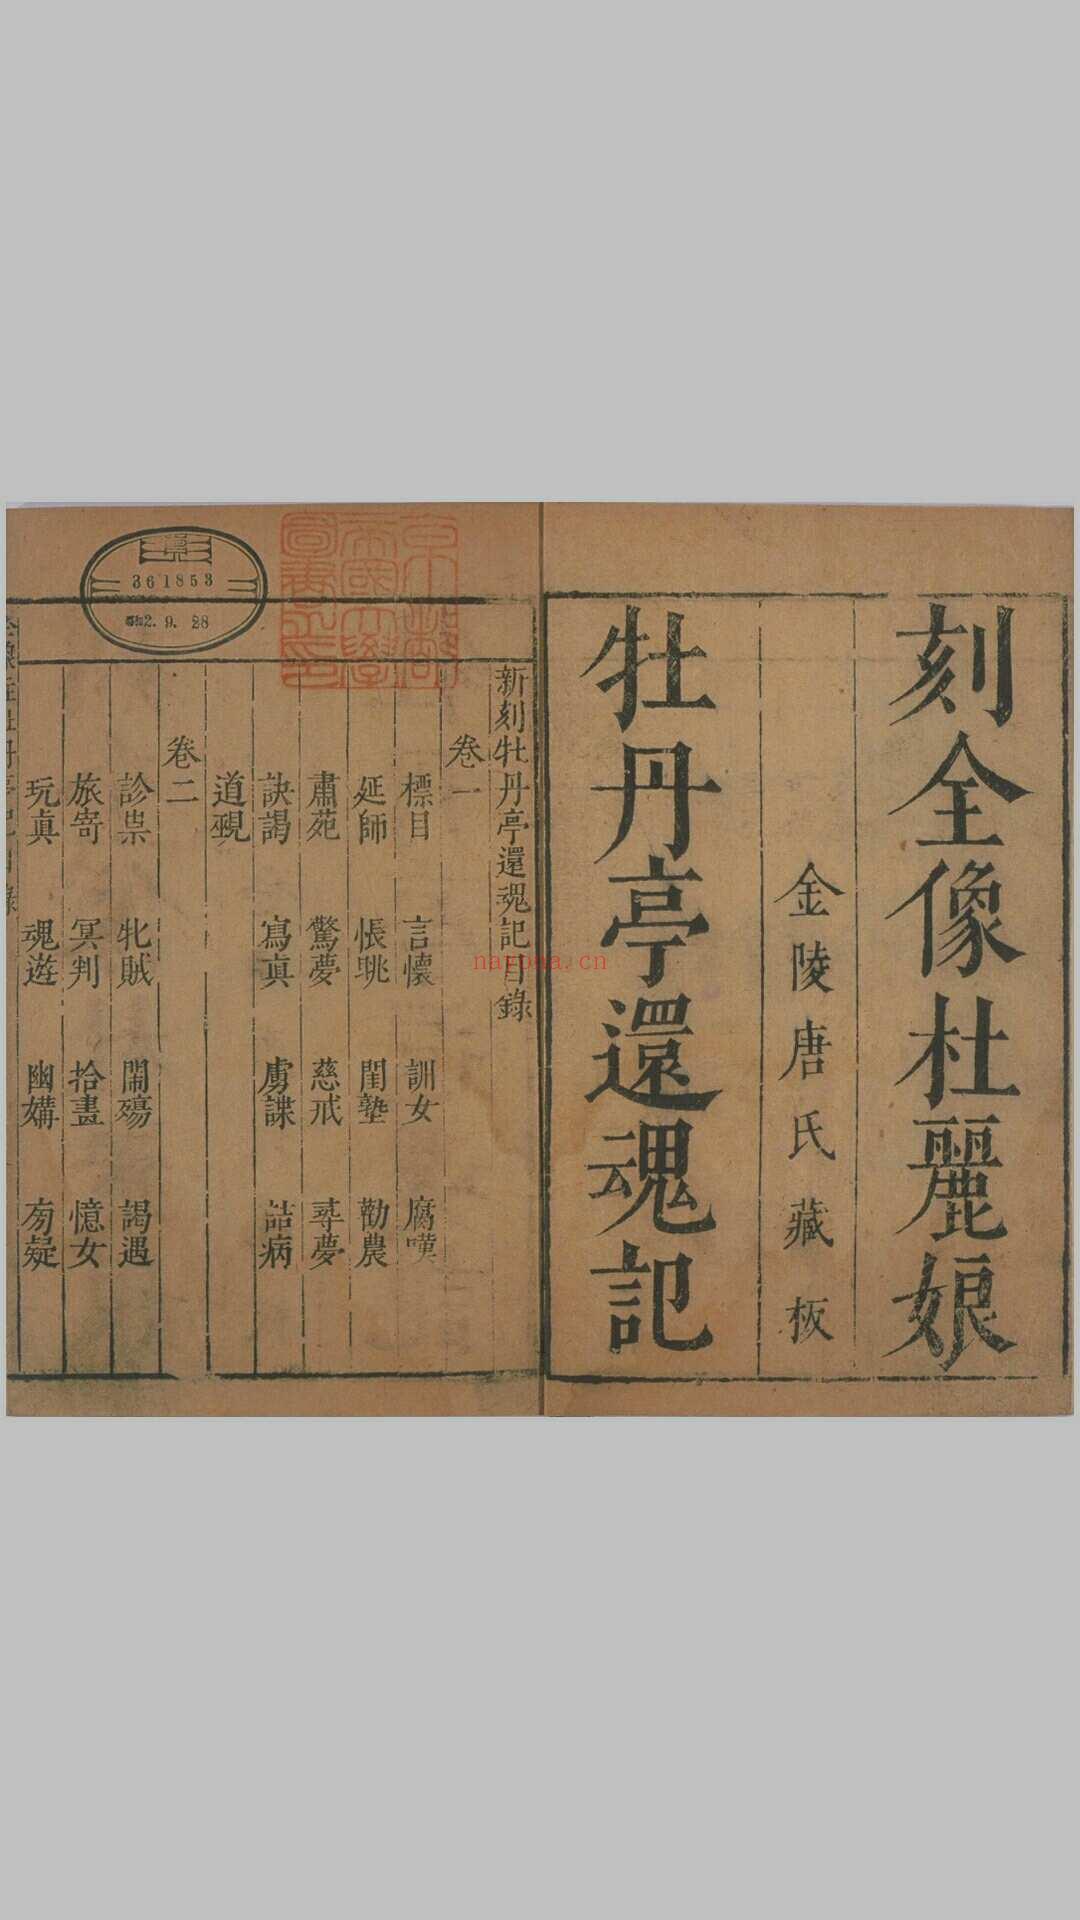 刻全像杜麗娘
金陵唐氏藏板
牡丹亭還魂記
新刻牡丹亭還魂記目錄
卷一
標目 言懷 訓女 腐嘆
延師 悵眺 閨塾 勸農
肅苑 驚夢 慈戒 尋夢
訣謁 寫真 虜諜 詰病
道覡
卷二
診祟 牝賊 鬧殤 謁遇
旅寄 冥判 拾畫 憶女
玩真 魂遊 幽媾 旁疑
京都帝國大學圖書之印
361853
昭和2. 9. 28
nayona.cn